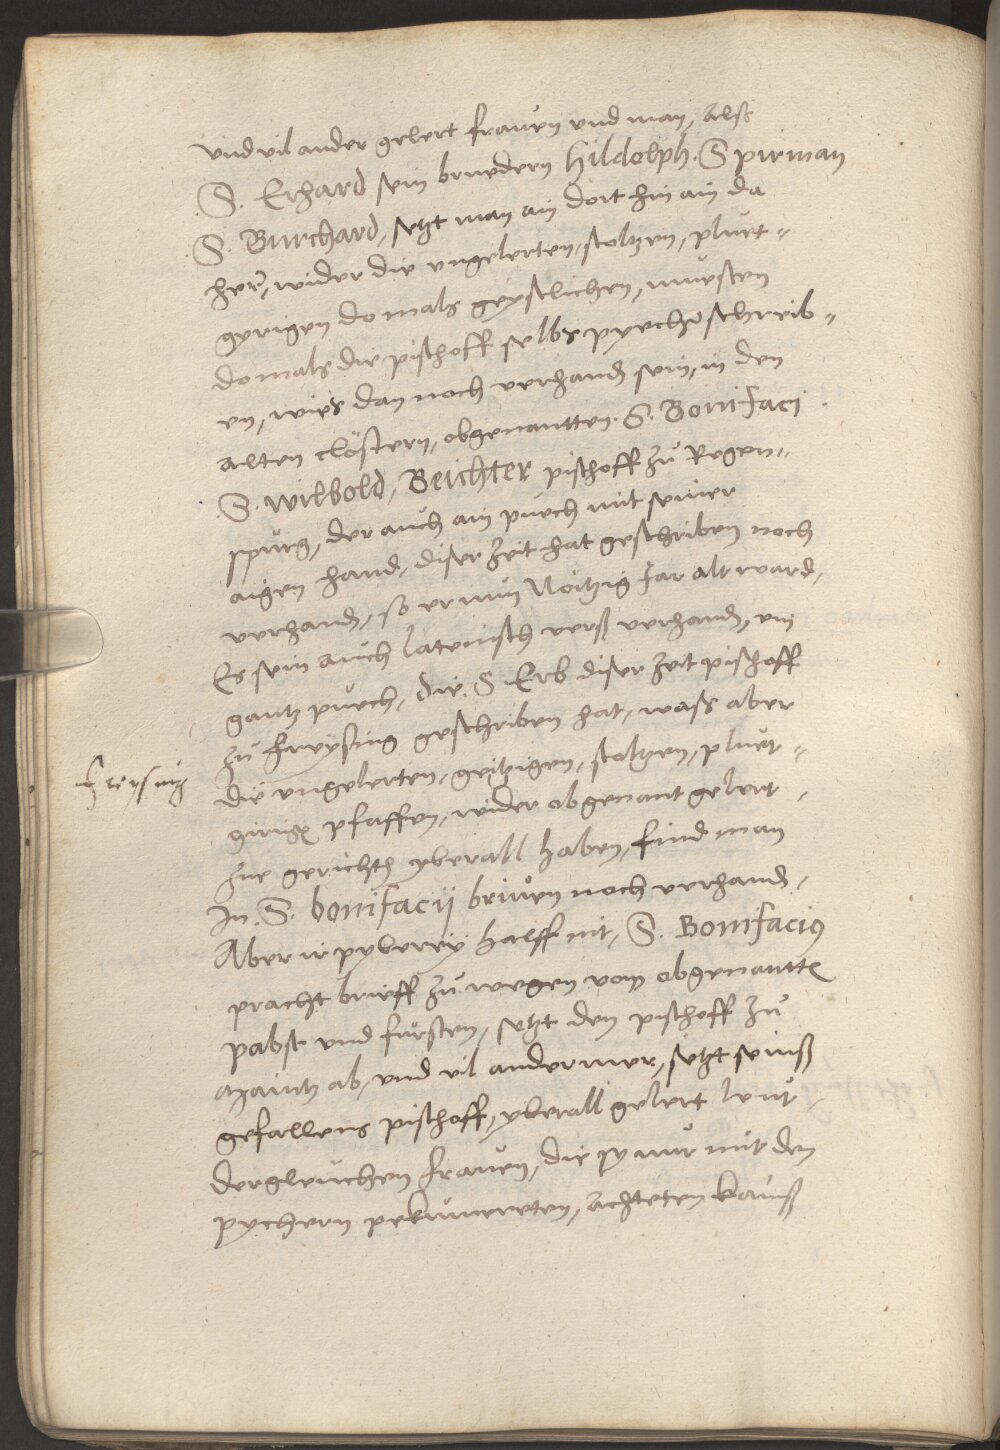 vnd vil ander gelert frauen vnd man, Alss
S. Erhard sein bruedern Hildolph. S pirman
S. Burchard, setzt man ain dort hin ain da
her, wider die vngelerten, stoltzen, pluet-
gyrigen domals geystlichen, muesten
domals die pischoff selbs pyecher schreib-
en, wies dan noch verhand sein, in den
alten clöstern, obgenantten. S. Bonifaci
S. Wilbold, Beichter pischoff zů Regen-
spurg, der auch ain puech mit seiner
aigen hand, diser zeit hat geschriben noch
verhand, so er nun Noitzig Jar alt ward,
Es sein auch latenisch verß verhand, ein
gantz puech, die. S Erb diser zeit pischoff
zů freysing geschriben hat, wass aber
die vngelerten, geitzigen, stoltzen, pluet-
girigen pfaffen, wider obgenant gelert
zue gericht yberall haben, find man
In. S. bonifacij brieuen noch verhand,
Aber ir pyberey halff nit, S. Bonifacius
pracht brieff zů wegen vom obgenantten
pabst vnd fürsten, setzt den pischoff zů
Maintz ab, vnd vil ander mer, setzt seinß
gefallens pischoff, yberall gelert leut
dergleuchen frauen, die sy nur mit den
pychern pekumerten, achteten kainß
Freysing